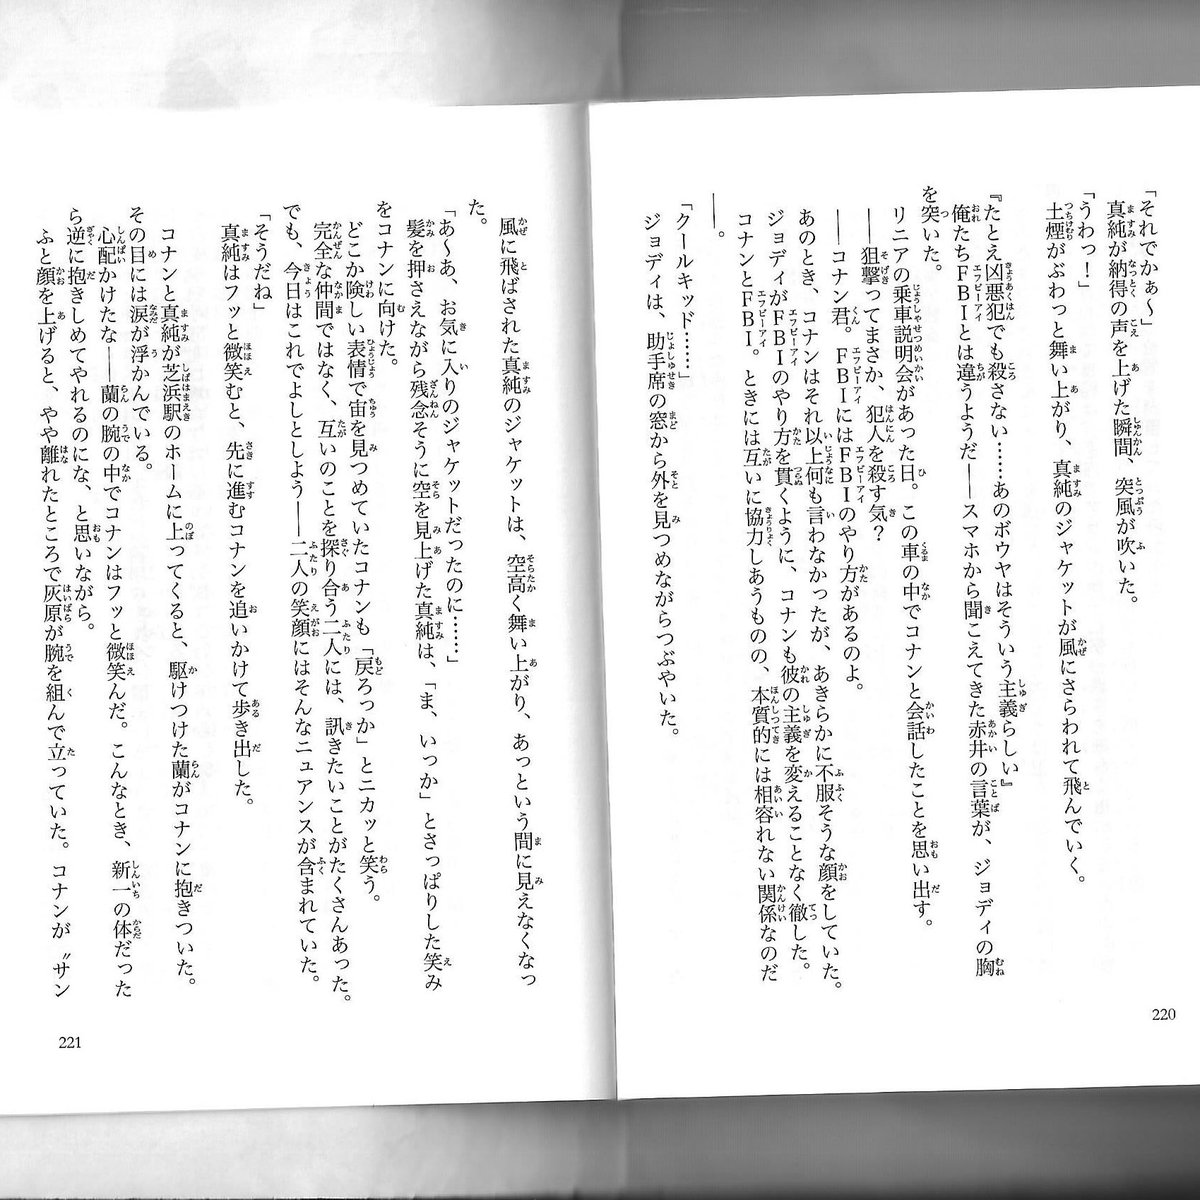 「それでかぁ～」
真純が納得の声を上げた瞬間、突風が吹いた。
「うわっ！」
土煙がぶわっと舞い上がり、真純のジャケットが風にさらわれて飛んでいく。
『たとえ凶悪犯でも殺さない……あのボウヤはそういう主義らしい』
俺たちＦＢＩとは違うようだ――スマホから聞こえてきた赤井の言葉が、ジョディの胸
を突いた。
リニアの乗車説明会があった日。この車の中でコナンと会話したことを思い出す。
――狙撃ってまさか、犯人を殺す気？
――コナン君。ＦＢＩにはＦＢＩのやり方があるのよ。
あのとき、コナンはそれ以上何も言わなかったが、あきらかに不服そうな顔をしていた。
ジョディがＦＢＩのやり方を貫くように、コナンも彼の主義を変えることなく徹した。
コナンとＦＢＩ。ときには互いに協力しあうものの、本質的には相容れない関係なのだ
――。
「クールキッド……」
ジョディは、助手席の窓から外を見つめながらつぶやいた。
220
風に飛ばされた真純のジャケットは、空高く舞い上がり、あっという間に見えなくなっ
た。
「あ～あ、お気に入りのジャケットだったのに……」
髪を押さえながら残念そうに空を見上げた真純は、「ま、いっか」とさっぱりした笑み
をコナンに向けた。
どこか険しい表情で宙を見つめていたコナンも「戻ろっか」とニカッと笑う。
完全な仲間ではなく、互いのことを探り合う二人には、訊きたいことがたくさんあった。
でも、今日はこれでよしとしよう――二人の笑顔にはそんなニュアンスが含まれていた。
「そうだね」
真純はフッと微笑むと、先に進むコナンを追いかけて歩き出した。
コナンと真純が芝浜駅のホームに上ってくると、駆けつけた蘭がコナンに抱きついた。
その目には涙が浮かんでいる。
心配かけたな――蘭の腕の中でコナンはフッと微笑んだ。こんなとき、新一の体だった
ら逆に抱きしめてやれるのにな、と思いながら。
ふと顔を上げると、やや離れたところで灰原が腕を組んで立っていた。コナンが〝サン
221